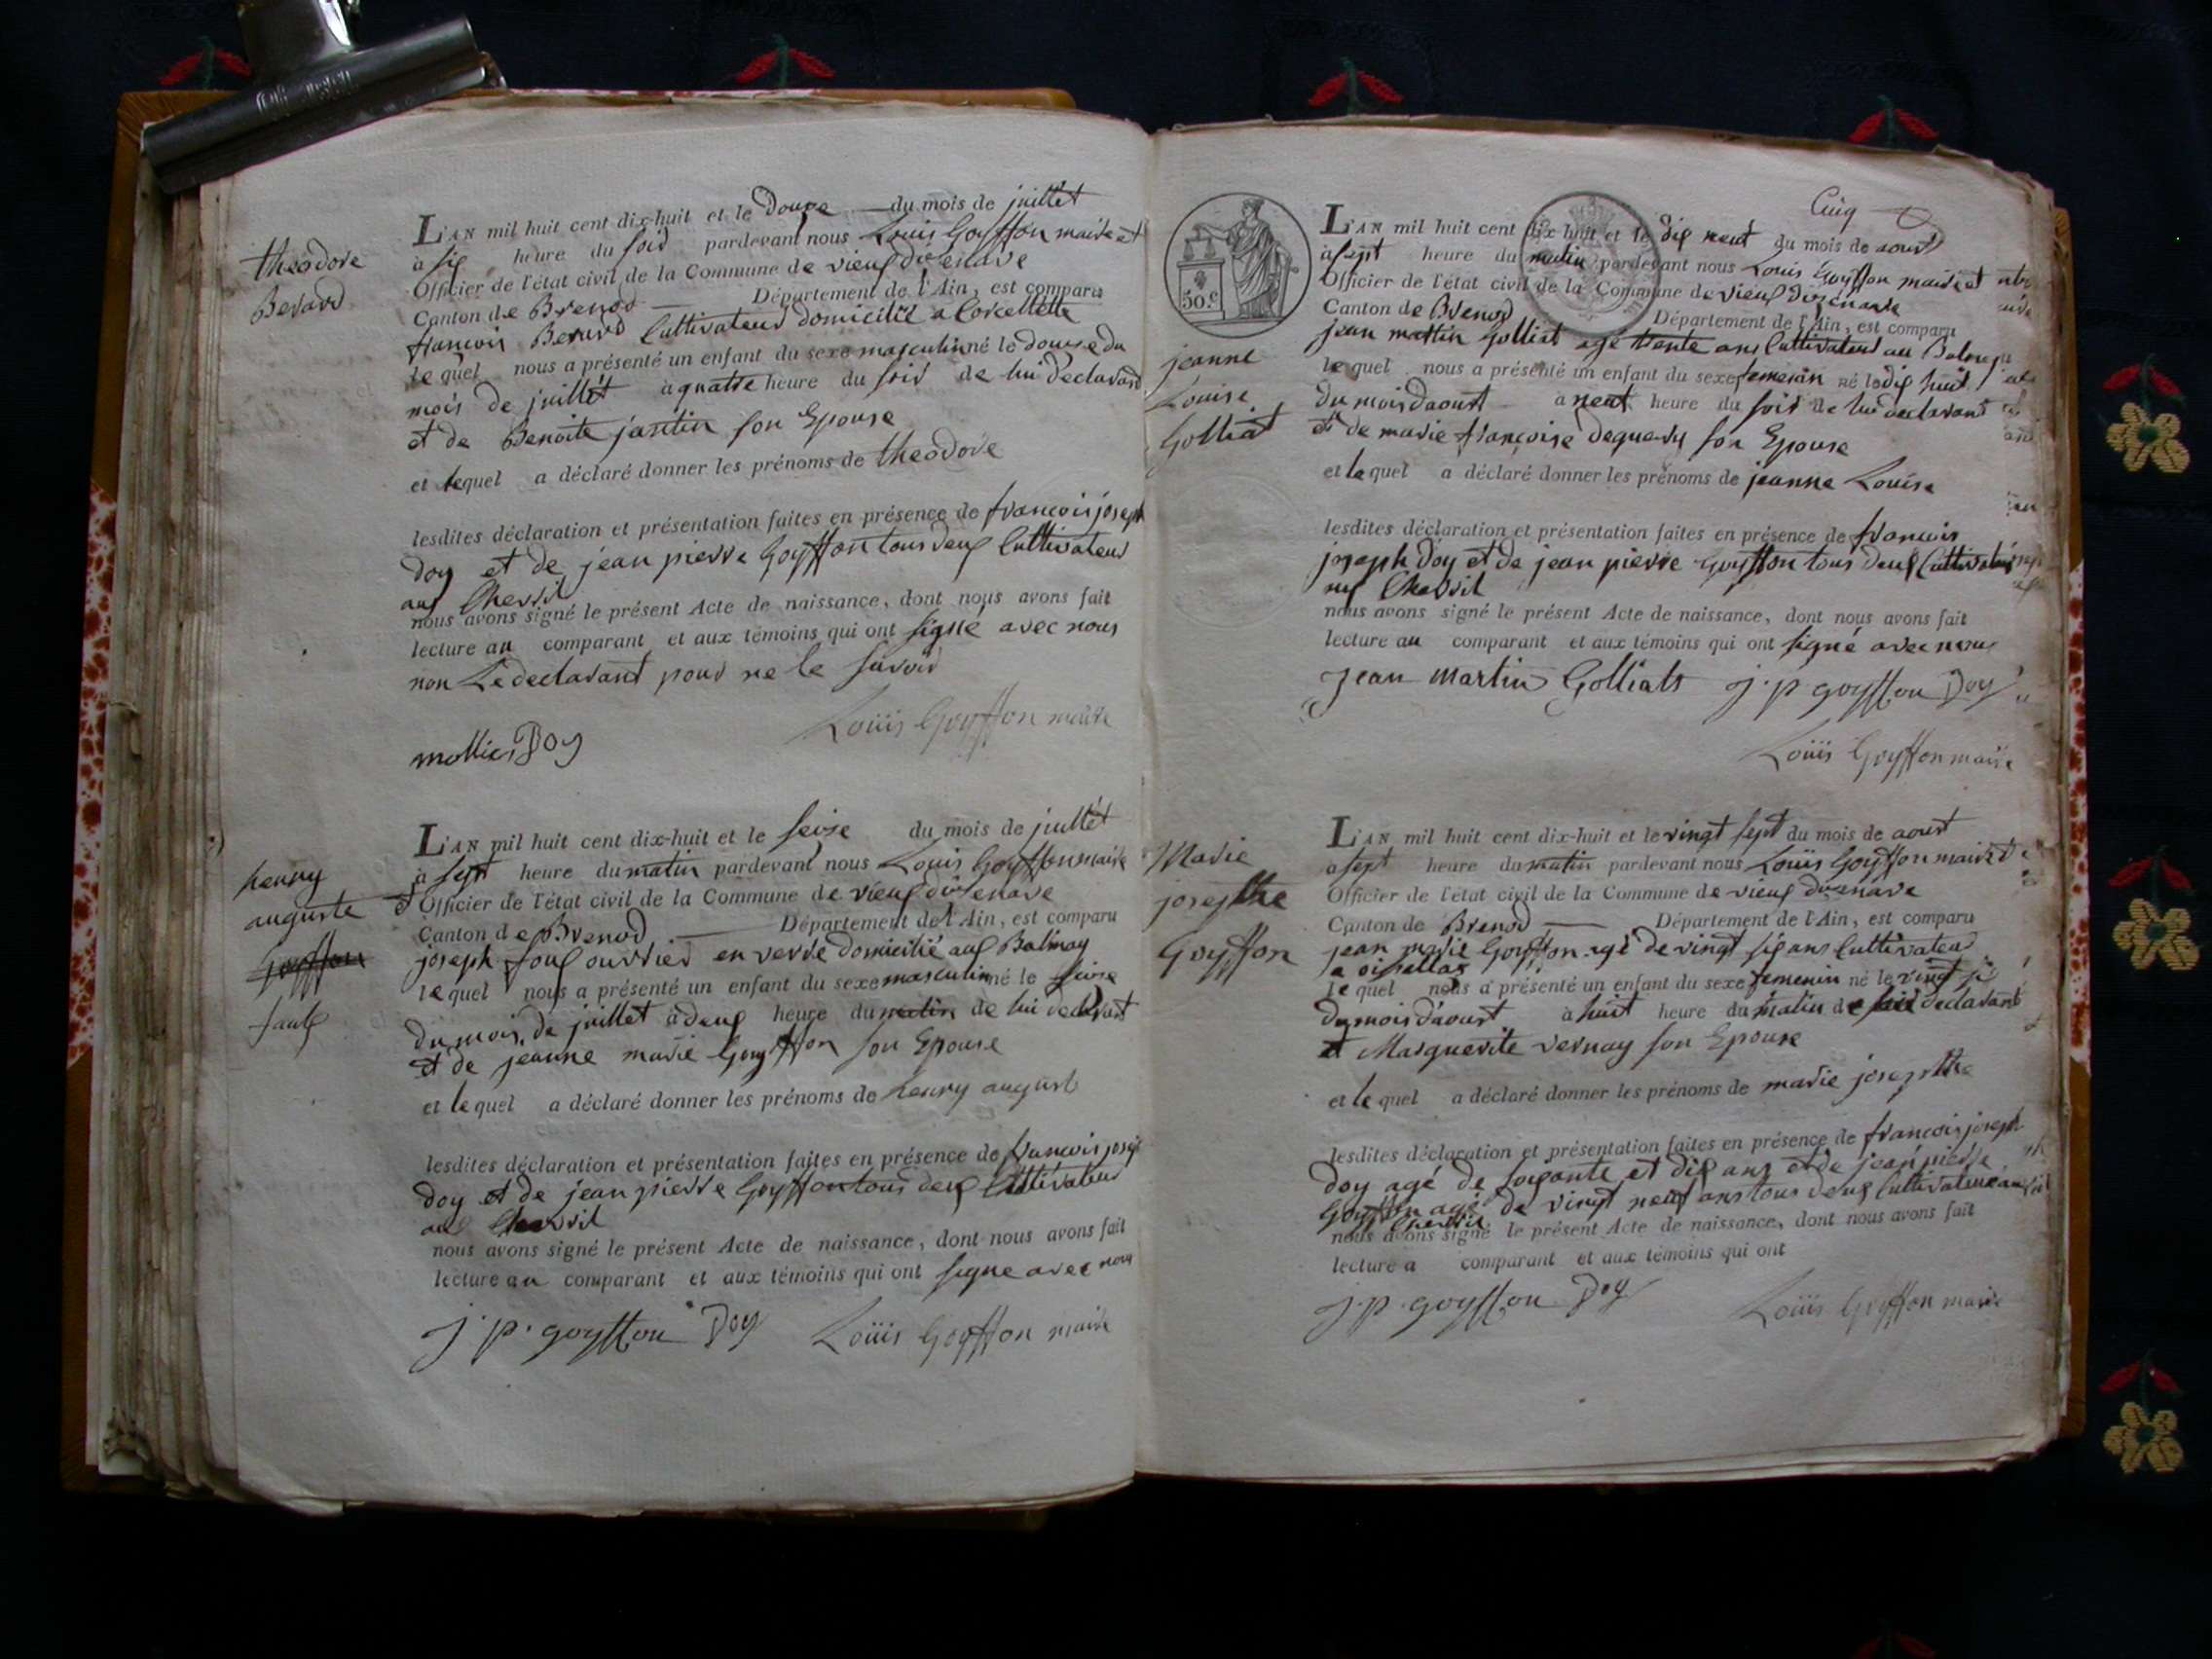 theodore
Berard
L'AN mil huit cent dix-huit et le douze du mois de juillet
à six heure du soir pardevant nous Louis Goyffon maire et
Officier de l'état civil de la Commune de vieux dizenave
Canton de Brenod Département de l'Ain, est comparu
francois Berard Cultivateur domicilié a Corcellette
lequel nous a présenté un enfant du sexe masculin né le douze du
mois de juillet à quatre heure du soir de lui declarant
et de Benoite jantin son Epouse
et lequel a déclaré donner les prénoms de theodore
lesdites déclaration et présentation faites en présence de francois joseph
doy et de jean pierre Goyffon tous deux Cultivateur
aux Chevril
nous avons signé le présent Acte de naissance, dont nous avons fait
lecture au comparant et aux témoins qui ont signé avec nous
non Le declarant pour ne le savoir
Louis Goyffon maire
mollier Doy
henry
auguste
Goyffon
faux
L'AN mil huit cent dix-huit et le seize du mois de juillet
à sept heure du matin pardevant nous Louis Goyffon maire
et Officier de l'état civil de la Commune de vieux dizenave
Canton de Brenod Département de l'Ain, est comparu
joseph foux ouvrier en verre domicilié aux Balmay
lequel nous a présenté un enfant du sexe masculin né le seize
du mois de juillet à deux heure du matin de lui declarant
et de jeanne marie Goyffon son Epouse
et lequel a déclaré donner les prénoms de henry august
lesdites déclaration et présentation faites en présence de francois josep
doy et de jean pierre Goyffon tous deux Cultivateur
aux Chevril
nous avons signé le présent Acte de naissance, dont nous avons fait
lecture au comparant et aux témoins qui ont signe avec nous
j. p. goyffon Doy Louis Goyffon maire
Cinq
50.c
jeanne
Louise
Golliat
L'AN mil huit cent dix-huit et le dix neuf du mois de aoust
à sept heure du matin pardevant nous Louis Goyffon maire et
Officier de l'état civil de la Commune de vieux dizenave
Canton de Brenod Département de l'Ain, est comparu
jean martin Golliat agé trente ans Cultivateur au Balmay
lequel nous a présenté un enfant du sexe femenin né le dix huit
du mois d'aoust à neuf heure du soir de lui declarant
et de marie françoise dequery son Epouse
et lequel a déclaré donner les prénoms de jeanne Louise
lesdites déclaration et présentation faites en présence de francois
joseph doy et de jean pierre Goyffon tous deux Cultivateur
aux Chevril
nous avons signé le présent Acte de naissance, dont nous avons fait
lecture au comparant et aux témoins qui ont signé avec nous
Jean Martin Golliats j. p. goyffon Doy
Louis Goyffon maire
Marie
josephte
Goyffon
L'AN mil huit cent dix-huit et le vingt sept du mois de aoust
à sept heure du matin pardevant nous Louis Goyffon maire
Officier de l'état civil de la Commune de vieux dizenave
Canton de Brenod Département de l'Ain, est comparu
jean marie Goyffon agé de vingt six ans Cultivateur
a oissellaz
lequel nous a présenté un enfant du sexe femenin né le vingt six
du mois d'aoust à huit heure du matin de lui declarant
et Marguerite vernay son Epouse
et lequel a déclaré donner les prénoms de marie josephte
lesdites déclaration et présentation faites en présence de francois joseph
doy agé de soixante et dix ans et de jean pierre
Goyffon agé de vingt neuf ans tous deux Cultivateur aux
Chevril
nous avons signé le présent Acte de naissance, dont nous avons fait
lecture a comparant et aux témoins qui ont
j. p. goyffon Doy Louis Goyffon maire